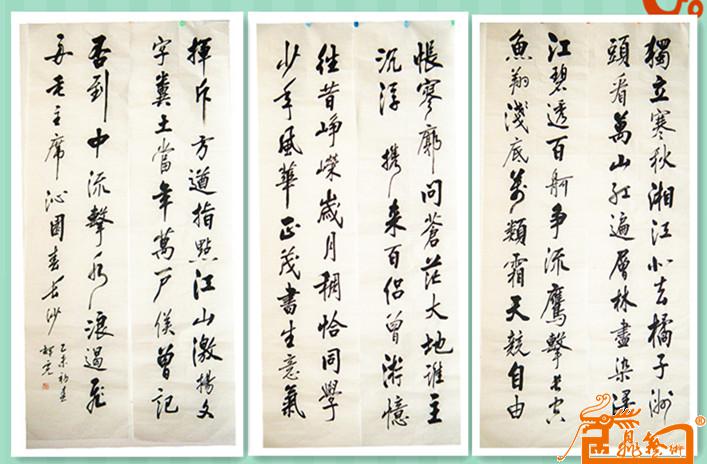 獨立寒秋湘江北去橘子洲
頭看萬山紅遍層林盡染漫
江碧透百舸爭流鷹擊長空
魚翔淺底萬類霜天競自由
悵寥廓問蒼茫大地誰主
沉浮 攜来百侣曾游憶
往昔崢嶸歲月稠恰同學
少年風華正茂書生意氣
揮斥方遒指點江山激揚文
字糞土當年萬戶侯曾記
否到中流擊水浪遏飛
舟毛主席沁園春長沙
乙未初春